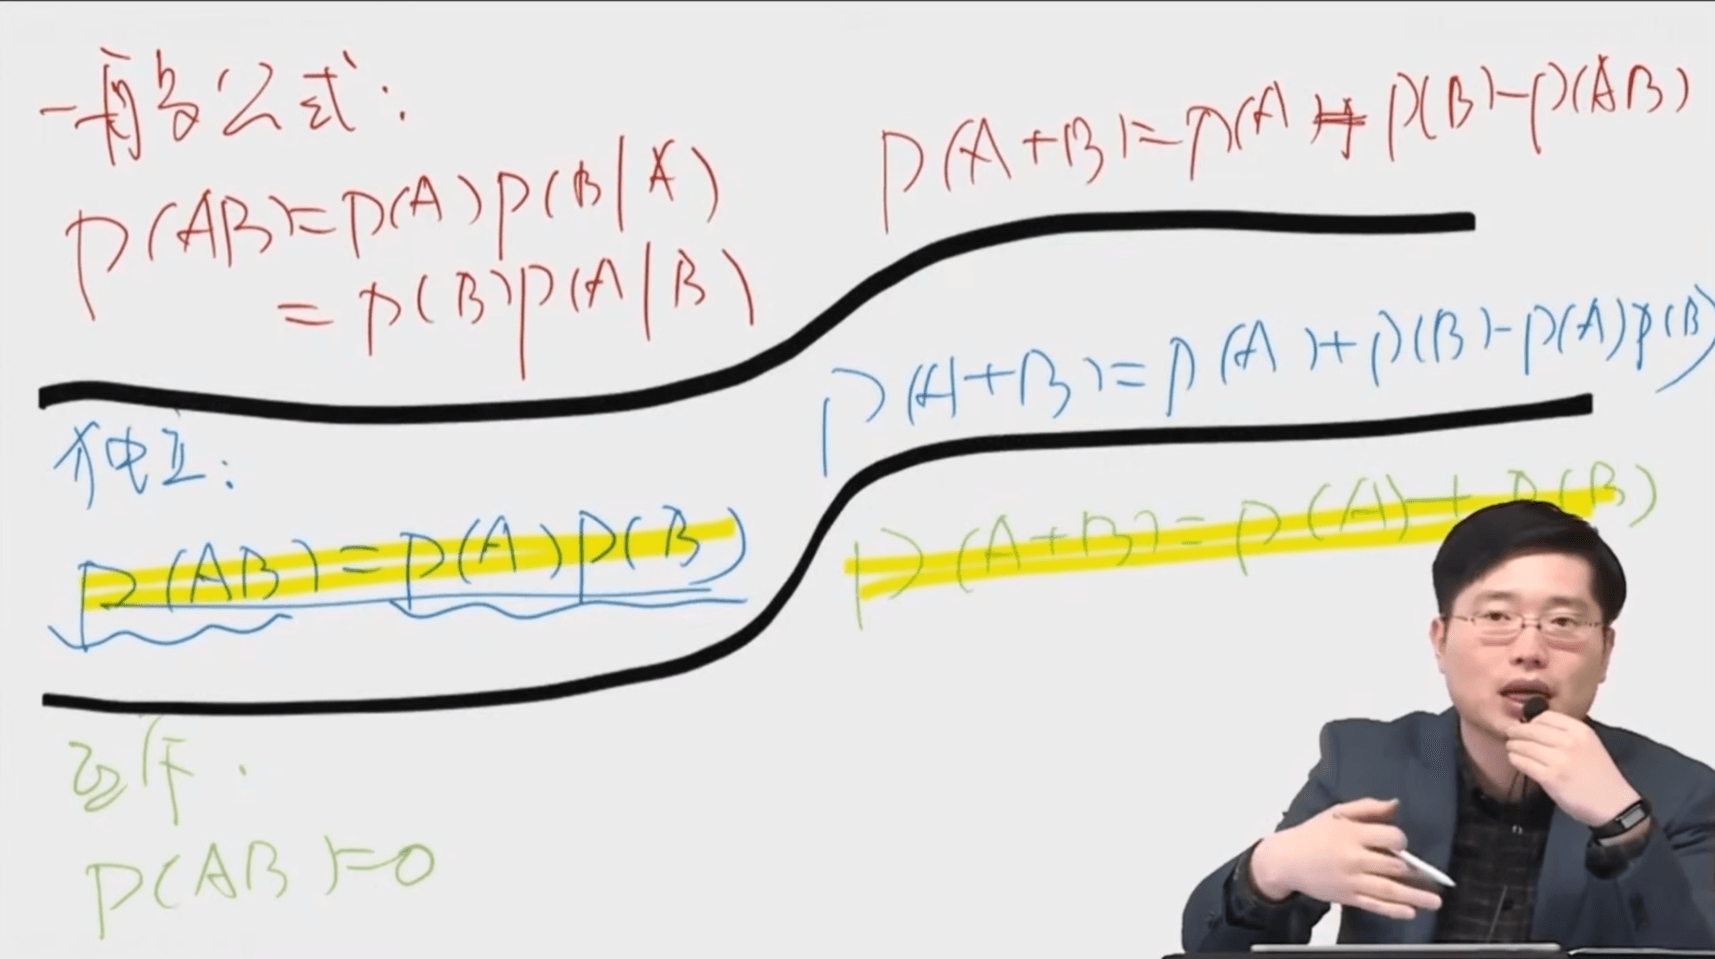 一般公式:
P(AB)=P(A)P(B|A)
=P(B)P(A|B)
P(A+B)=P(A)+P(B)-P(AB)
独立:
P(AB)=P(A)P(B)
P(A+B)=P(A)+P(B)-P(A)P(B)
互斥:
P(AB)=0
P(A+B)=P(A)+P(B)